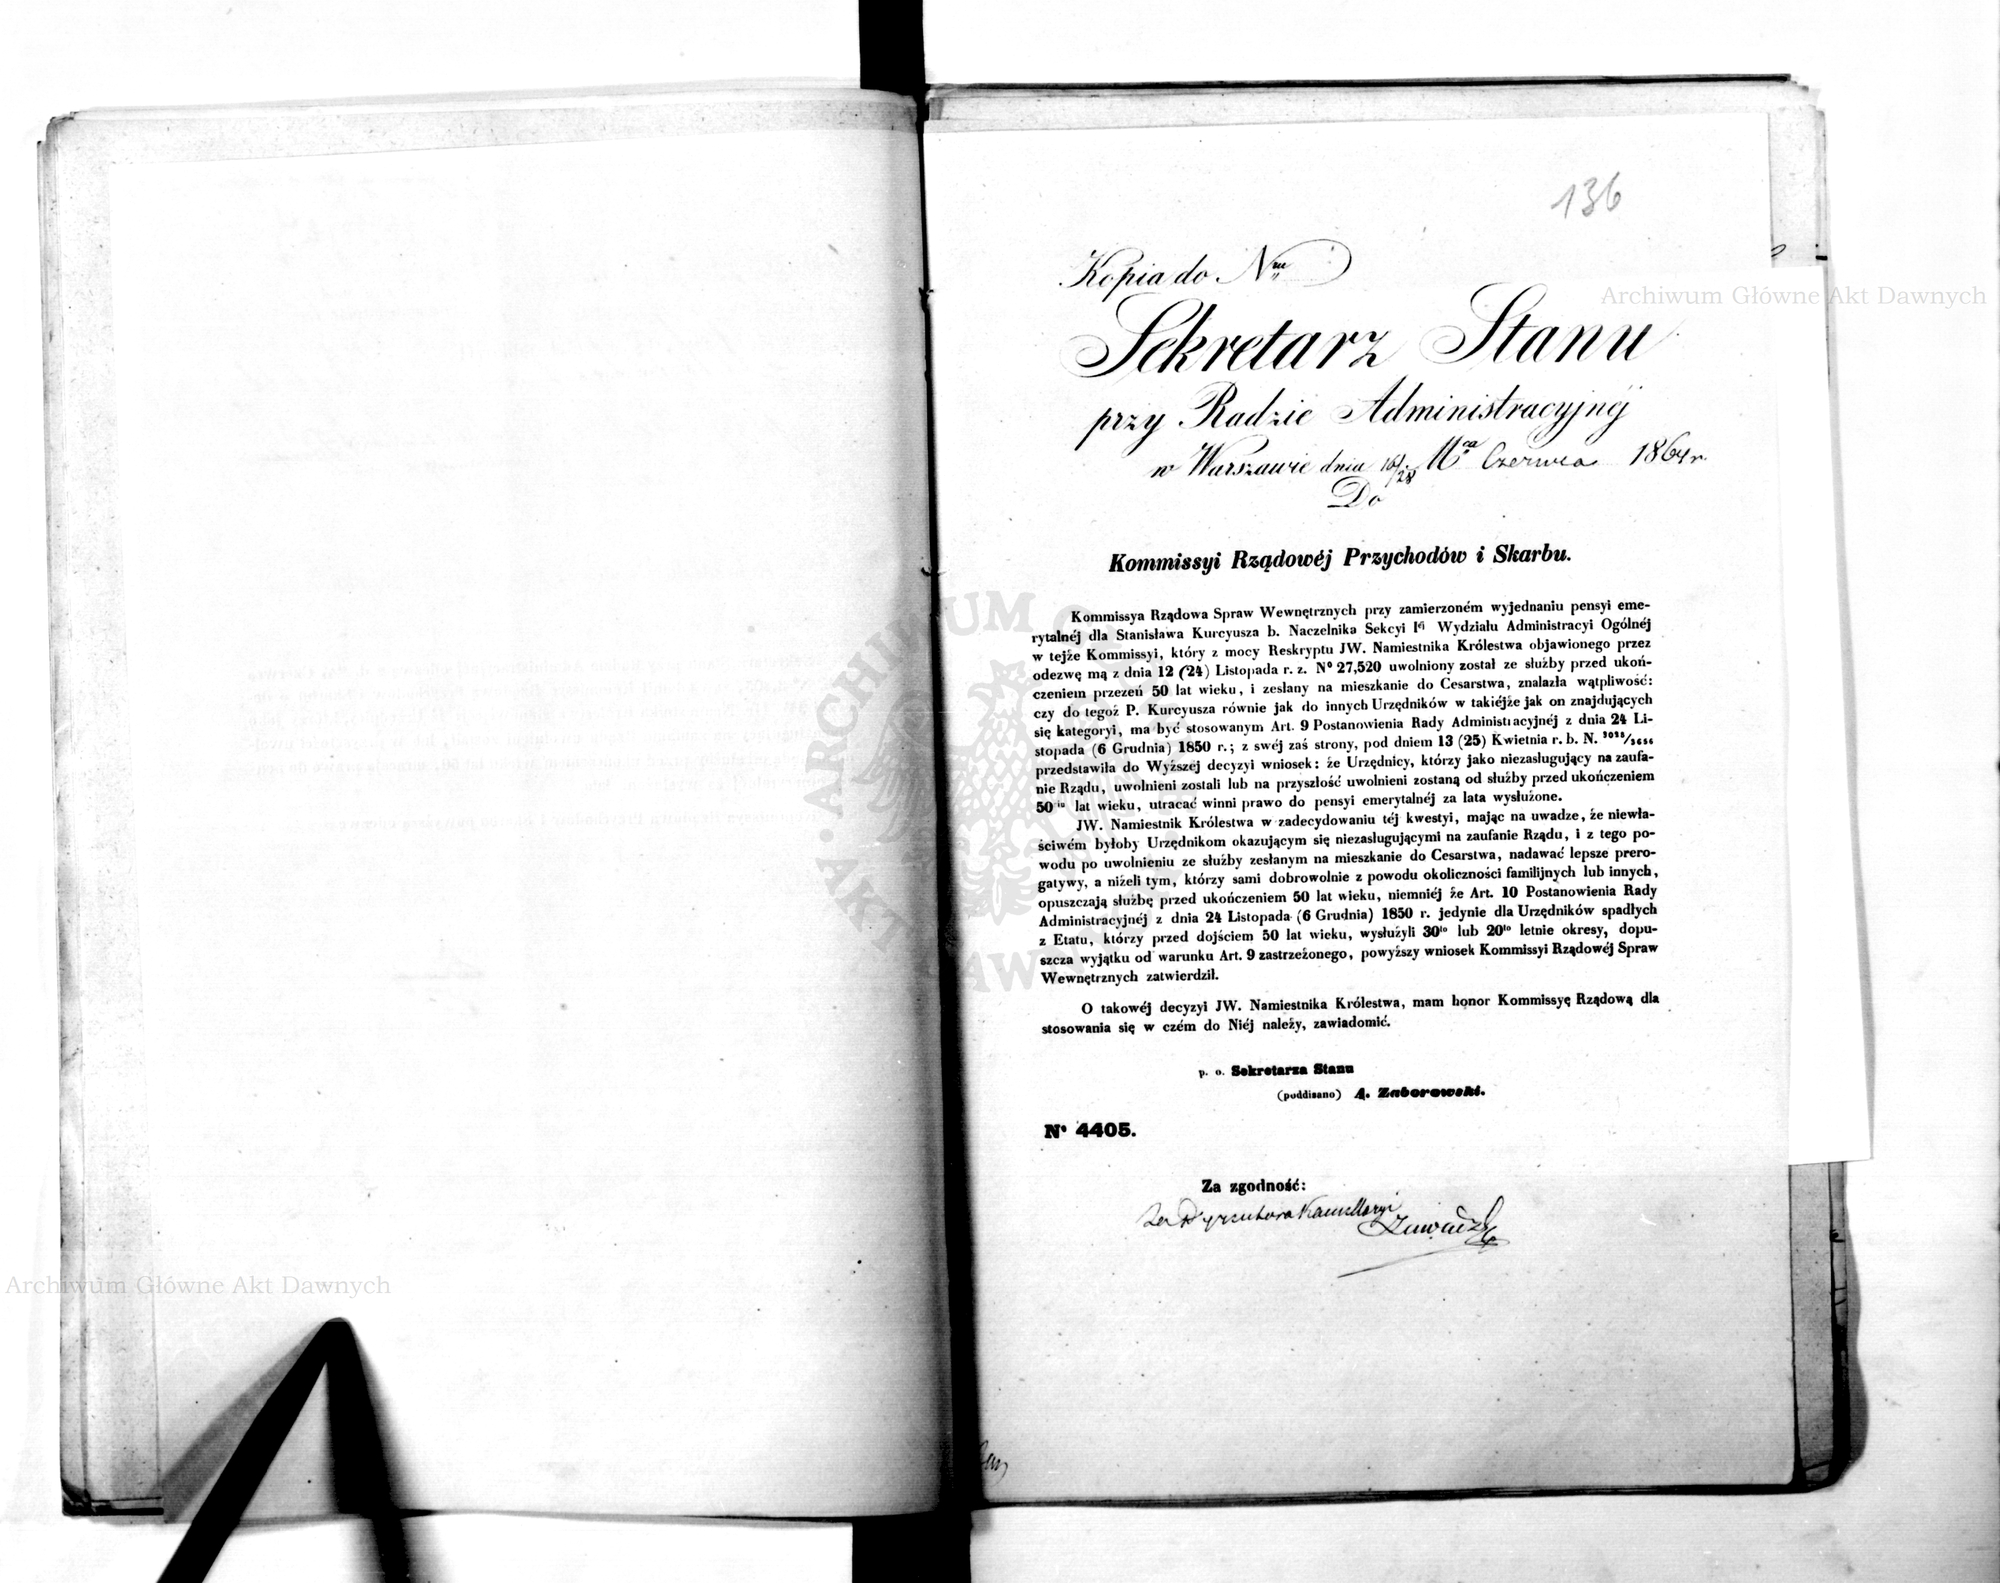 136
Kopia do Nru
Sekretarz Stanu
przy Radzie Administracyjnéj
w Warszawie dnia 16/28 Mca Czerwca 1864 r.
Do
Kommissyi Rządowéj Przychodów i Skarbu.
Kommissya Rządowa Spraw Wewnętrznych przy zamierzoném wyjednaniu pensyi eme-
rytalnéj dla Stanisława Kurcyusza b. Naczelnika Sekcyi Iéj Wydziału Administracyi Ogólnéj
w tejże Kommissyi, który z mocy Reskryptu JW. Namiestnika Królestwa objawionego przez
odezwę mą z dnia 12 (24) Listopada r. z. No 27,520 uwolniony został ze służby przed ukoń-
czeniem przezeń 50 lat wieku, i zesłany na mieszkanie do Cesarstwa, znalazła wątpliwość:
czy do tegoż P. Kurcyusza równie jak do innych Urzędników w takiéjże jak on znajdujących
się kategoryi, ma być stosowanym Art. 9 Postanowienia Rady Administracyjnéj z dnia 24 Li-
stopada (6 Grudnia) 1850 r.; z swéj zaś strony, pod dniem 13 (25) Kwietnia r. b. N.
przedstawiła do Wyższej decyzyi wniosek: że Urzędnicy, którzy jako niezasługujący na zaufa-
nie Rządu, uwolnieni zostali lub na przyszłość uwolnieni zostaną od służby przed ukończeniem
50ciu lat wieku, utracać winni prawo do pensyi emerytalnéj za lata wysłużone.
JW. Namiestnik Królestwa w zadecydowaniu téj kwestyi, mając na uwadze, że niewła-
ściwém byłoby Urzędnikom okazującym się niezasługującymi na zaufanie Rządu, i z tego po-
wodu po uwolnieniu ze służby zesłanym na mieszkanie do Cesarstwa, nadawać lepsze prero-
gatywy, a niżeli tym, którzy sami dobrowolnie z powodu okoliczności familijnych lub innych,
opuszczają służbę przed ukończeniem 50 lat wieku, niemniéj że Art. 10 Postanowienia Rady
Administracyjnéj z dnia 24 Listopada (6 Grudnia) 1850 r. jedynie dla Urzędników spadłych
z Etatu, którzy przed dojściem 50 lat wieku, wysłużyli 30to lub 20to letnie okresy, dopu-
szcza wyjątku od warunku Art. 9 zastrzeżonego, powyższy wniosek Kommissyi Rządowéj Spraw
Wewnętrznych zatwierdził.
O takowéj decyzyi JW. Namiestnika Królestwa, mam honor Kommissyę Rządową dla
stosowania się w czém do Niéj należy, zawiadomić.
p. o. Sekretarza Stanu
(poddisano) A. Zaborowski.
No 4405.
Za zgodność:
Za Dyrektora Kancellaryi
Archiwum Główne Akt Dawnych
Archiwum Główne Akt Dawnych